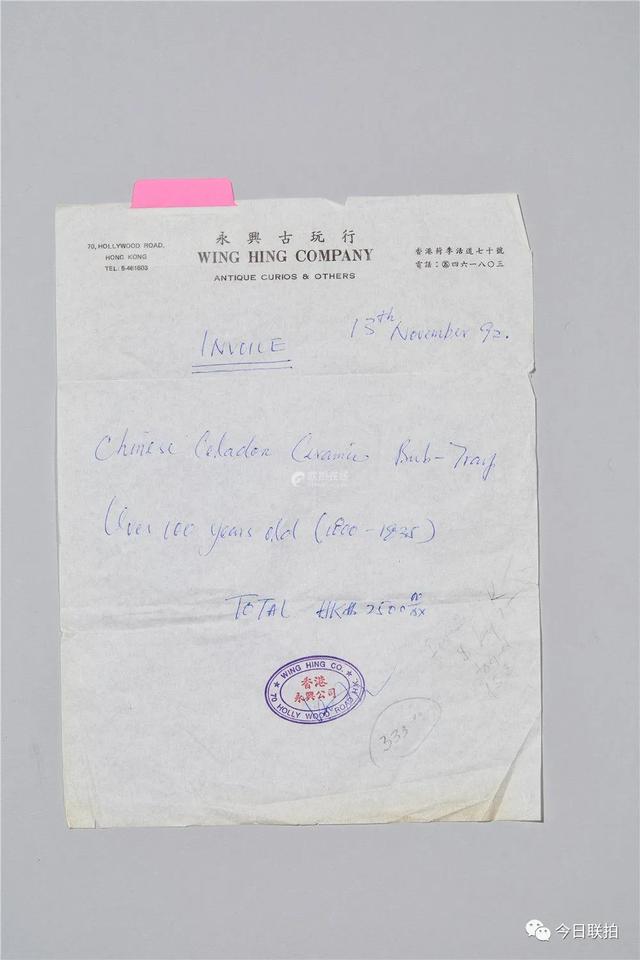 永興古玩行
70, HOLLYWOOD ROAD,
HONG KONG
TEL. 5-461803
WING HING COMPANY
ANTIQUE CURIOS & OTHERS
香港荷李活道七十號
電話：㊄四六一八〇三
INVOICE
13th November 92.
Chinese Celadon Ceramic Bub-Tray
Over 100 years old (1800-1835)
TOTAL HK$ 2500 00/xx
WING HING CO.
香港
永興公司
70 HOLLY WOOD ROAD HK.
333.
今日联拍